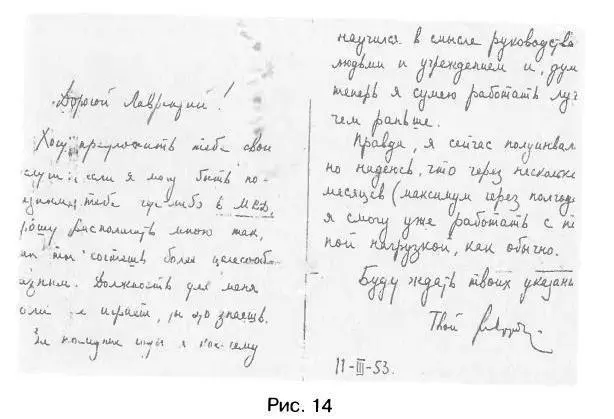 Дорогой Лаврентий!
Хочу предложить тебе свои
услуги: если я могу быть по-
тебе где-либо в МВД,
прошу располагать мною так,
как ты сочтешь более целесооб-
разным. Должность для меня
роли не играет, ты это знаешь.
За последние годы я кое-чему
научился в смысле руководства
людьми и учреждением и, дум
теперь я сумею работать луч
чем раньше.
Правда, я сейчас полуинвал
но надеюсь, что через несколько
месяцев (максимум через полгода
я смогу уже работать с по
ной нагрузкой, как обычно.
Буду ждать твоих указани
Твой
11-III-53.
Рис. 14